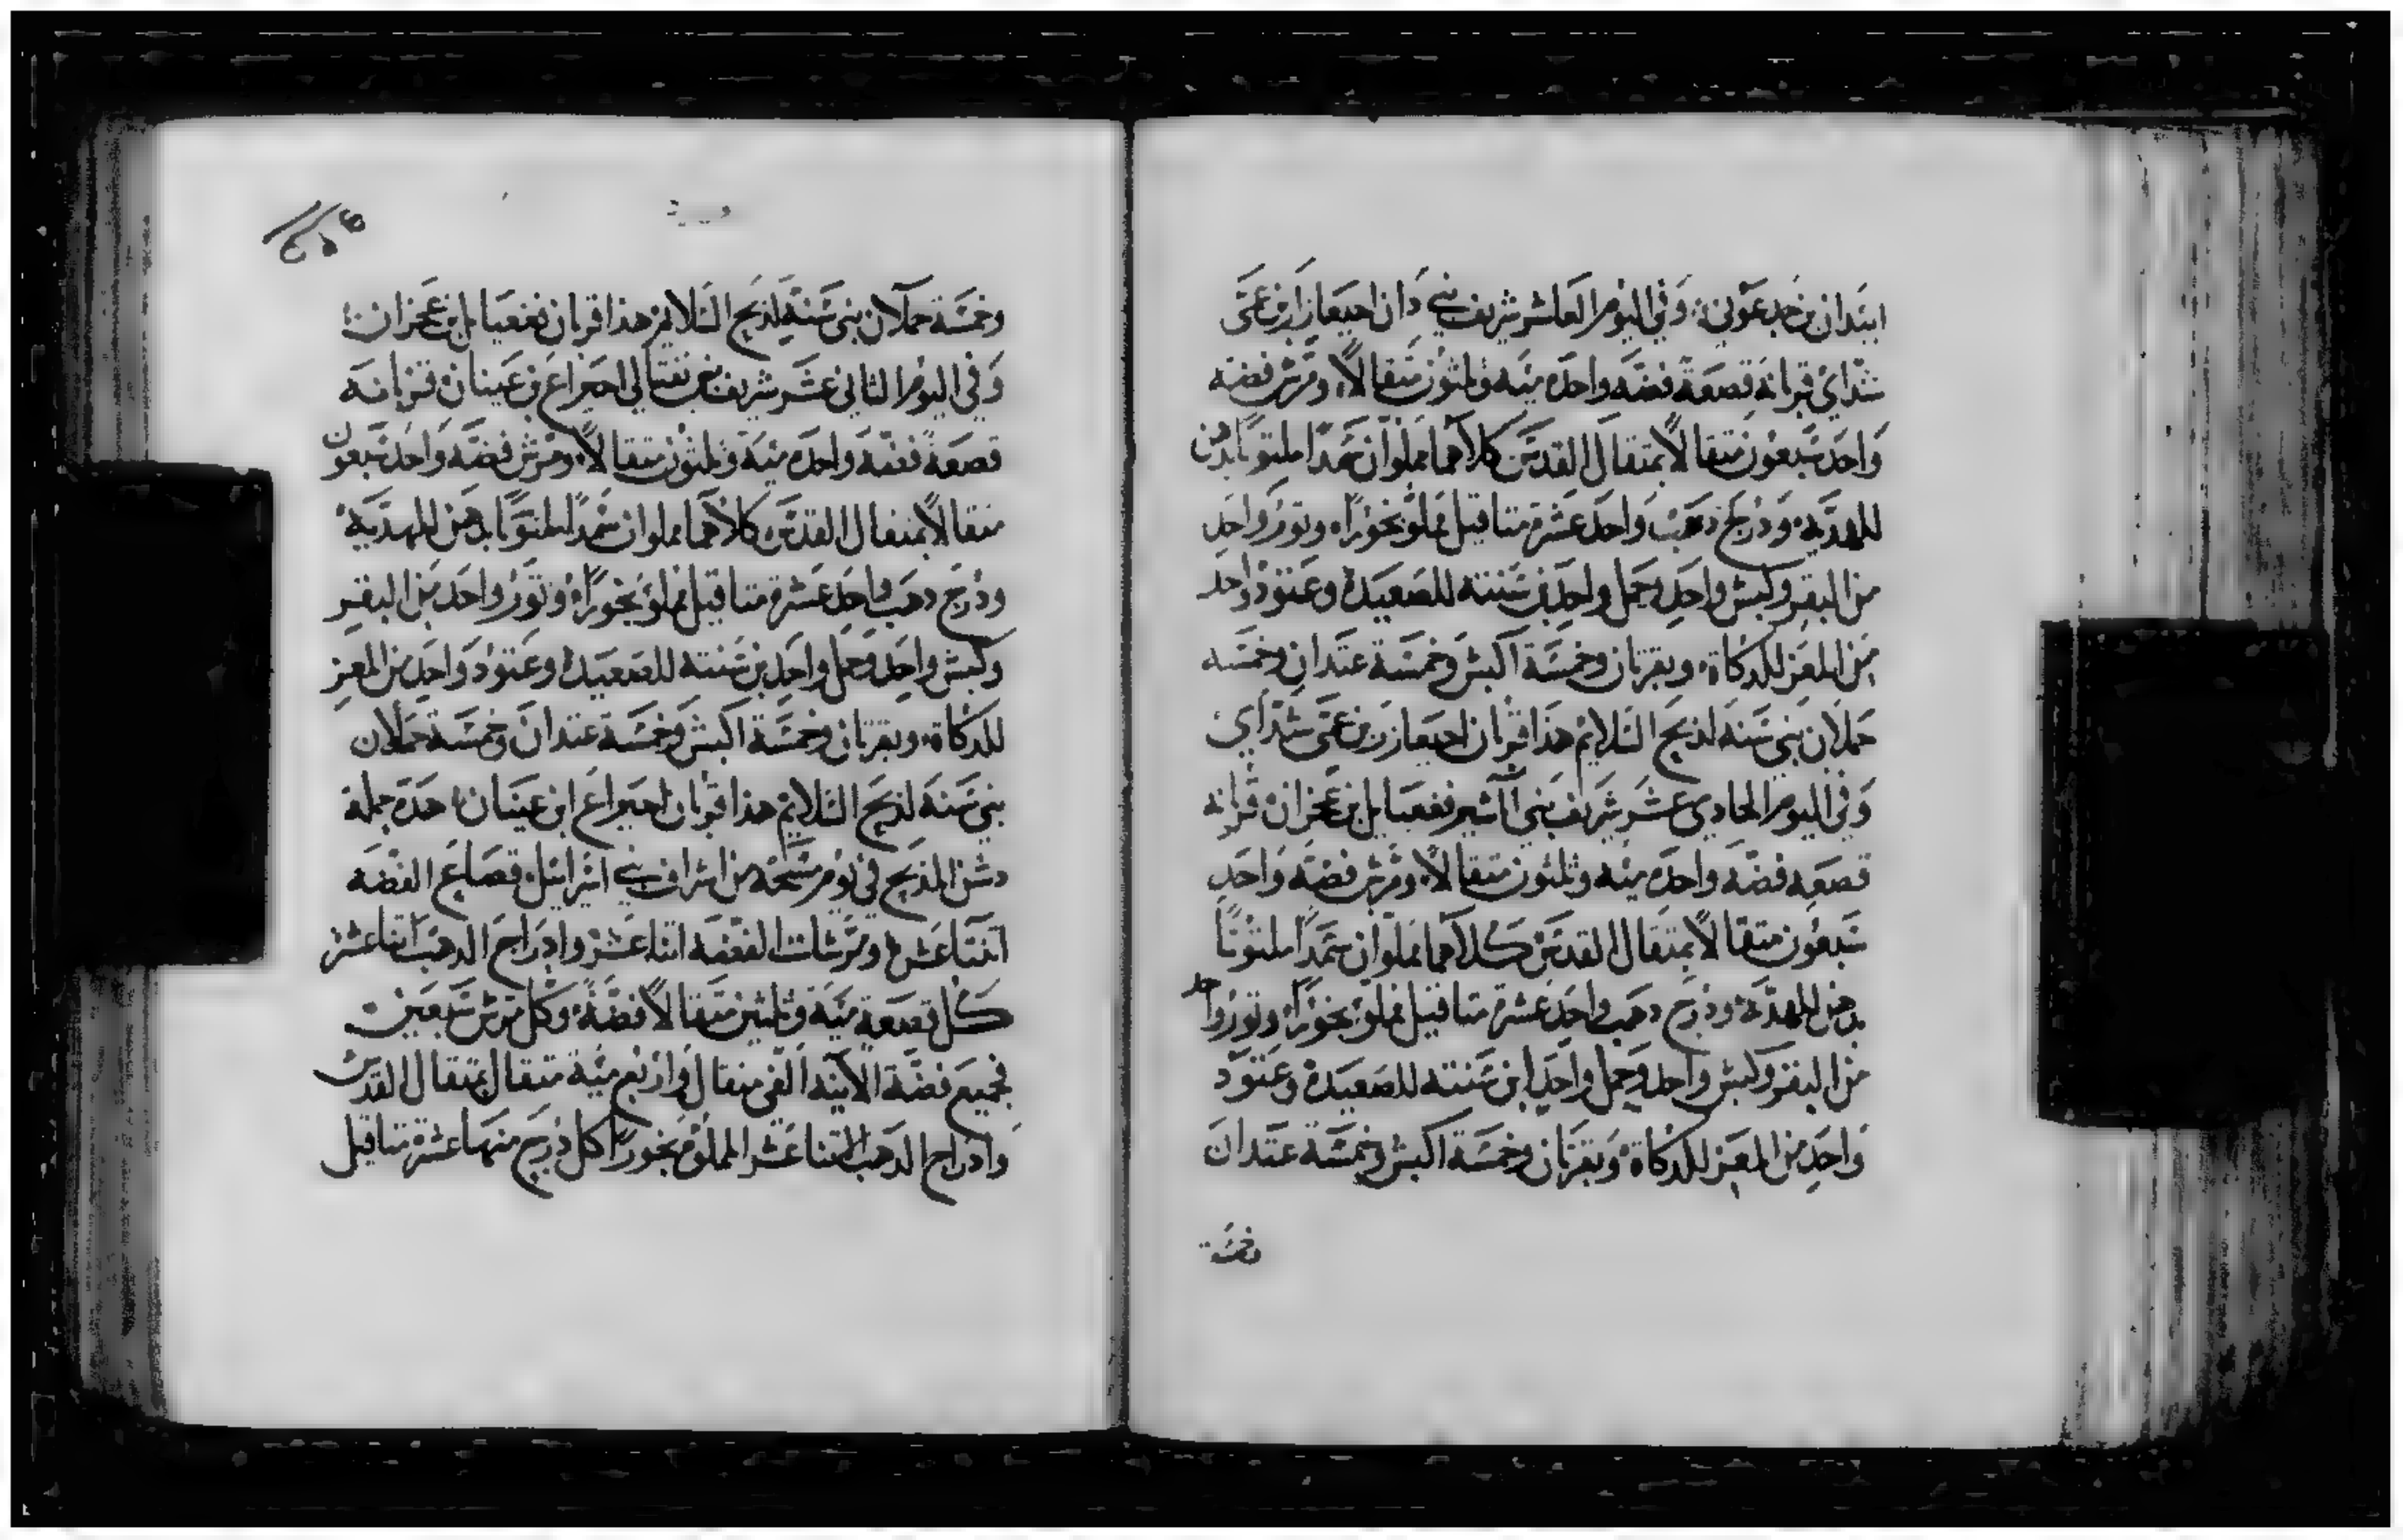 ابيدان بن جدعوني، وفي اليوم العاشر شريف بني دان احيعازر ابن عمى
شداي قربانه قصعة فضه واحده ميه وثلثون متقالاً ومرش فضه
واحد سبعون متقالاً بمتقال القدس كلاهما مملوان سمدًا ملتوتا بدهن
للهديه ودرج دهب واحد عشرة متاقيل مملو بخورًا وتور واحد
من البقر وكبش واحد وحمل واحد بن سنته للصعيدة وعتود واحد
من المعز للدكاة، وبقرتان وخمسة اكبش وخمسة عتدان وخمسه
حملان بني سنه لذبح السلايم هذا قربان احيعازر بن عمى شداي
وفي اليوم الحادي عشر شريف بني اشير فغعيايل بن عخران قربانه
قصعه فضه واحده ميه وثلثون متقالاً ومرش فضه واحد
سبعون متقالاً بمتقال القدس كلاهما مملوان سمدًا ملتوتًا
بدهن للهدية ودرج دهب واحد عشرة متاقيل مملو بخورًا وتور واحد
من البقر وكبش واحد وحمل واحد ابن سنته للصعيدة وعتود
واحد من المعز للدكاة وبقرتان وخمسة اكبش وخمسة عتدان
وخمسة
وخمسة حملان بني سنة لذبح السلايم هذا قربان فغعيايل بن عخران
وفي اليوم الثاني عشر شريف بني نفتالي احيراع بن عينان قربانه
قصعة فضة واحده ميه وثلثون متقالاً ومرش فضه واحد سبعون
متقالاً بمتقال القدس كلاهما مملوان سمدًا ملتوتًا بدهن للهدية
ودرج دهب واحد عشرة متاقيل مملو بخورًا وتور واحد من البقر
وكبش واحد وحمل واحد بن سنته للصعيدة وعتود واحد من المعز
للدكاة وبقرتان وخمسة اكبش وخمسة عتدان وخمسة حملان
بني سنه لذبح السلايم هذا قربان احيراع ابن عينان هده جملة
دشن المذبح في يوم مسحه من اشراف بني اسرائيل قصاع الفضه
اثنتا عشرة ومرشات الفضه اثنا عشر وادراج الدهب اثنا عشر
كل قصعة ميه وثلثين متقالاً فضة وكل مرش سبعين
فجميع فضة الآنيه الفي متقال واربع مية متقال بمتقال القدس
وادراج الدهب الاثنا عشر المملوه بخورًا كل درج منها عشرة متاقيل